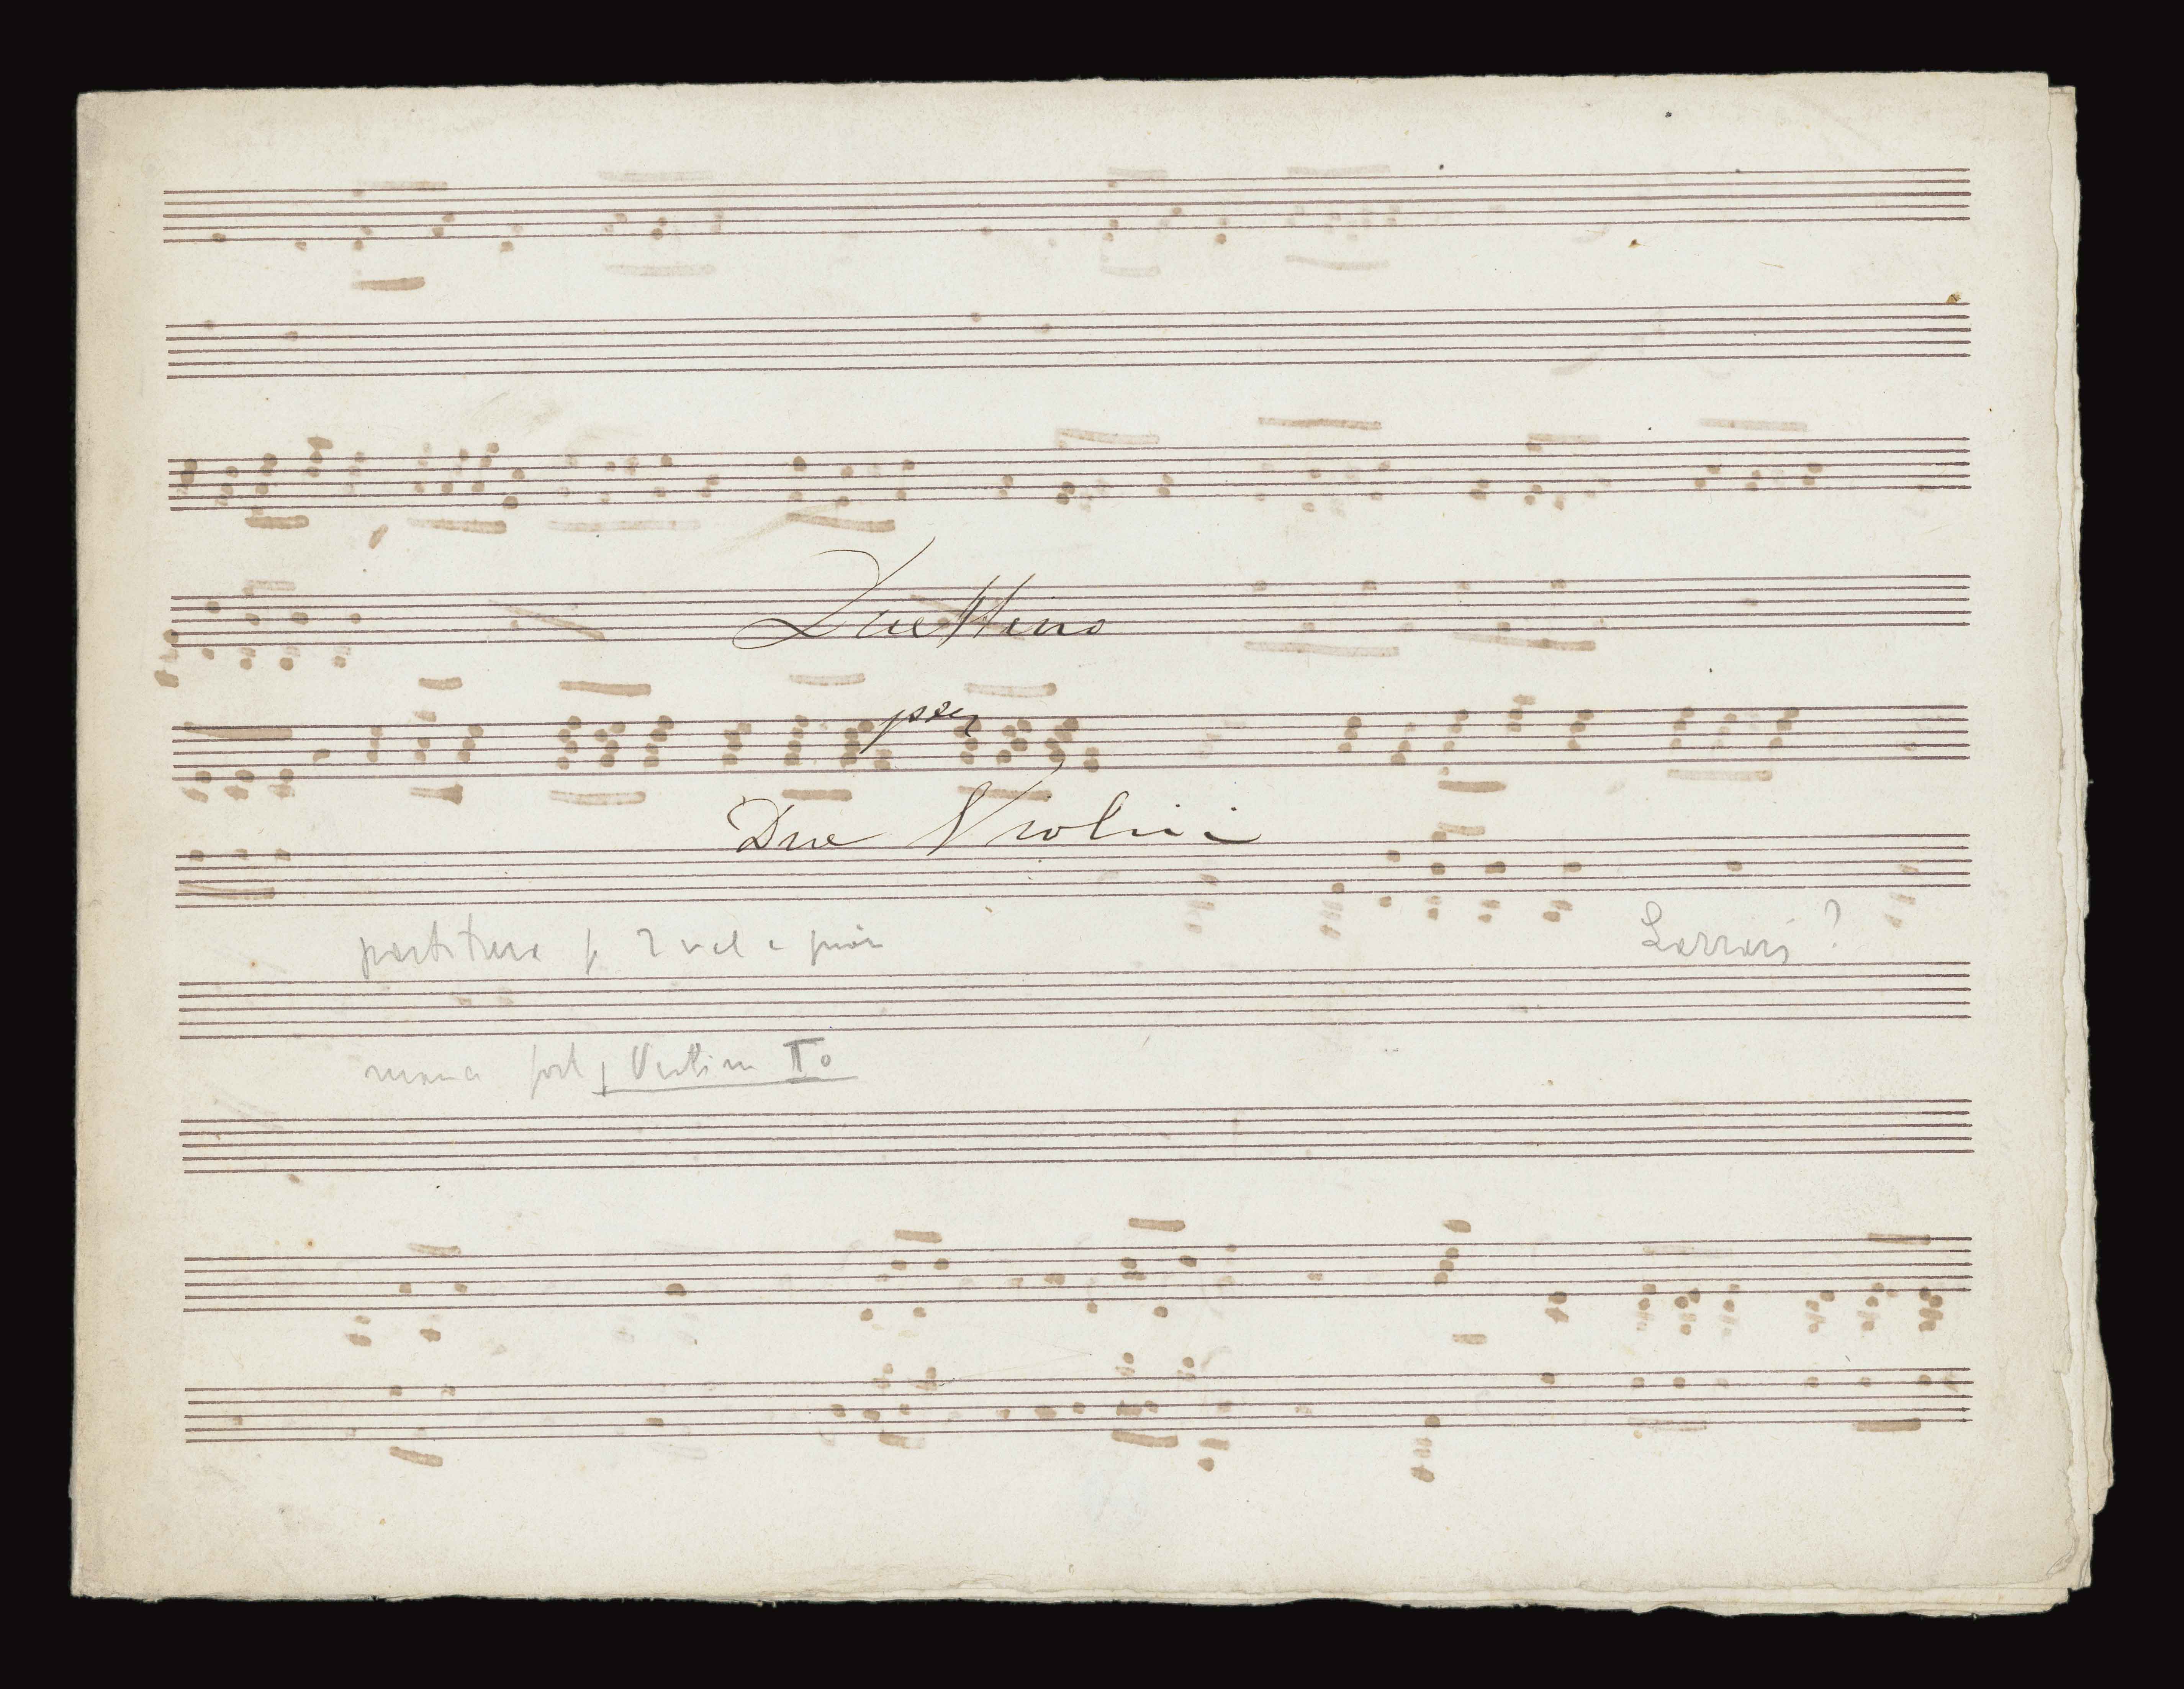 Duettino
per
Due Violini
partitura p 2 viol e pian
Lorrais ?
manca part Violin Io